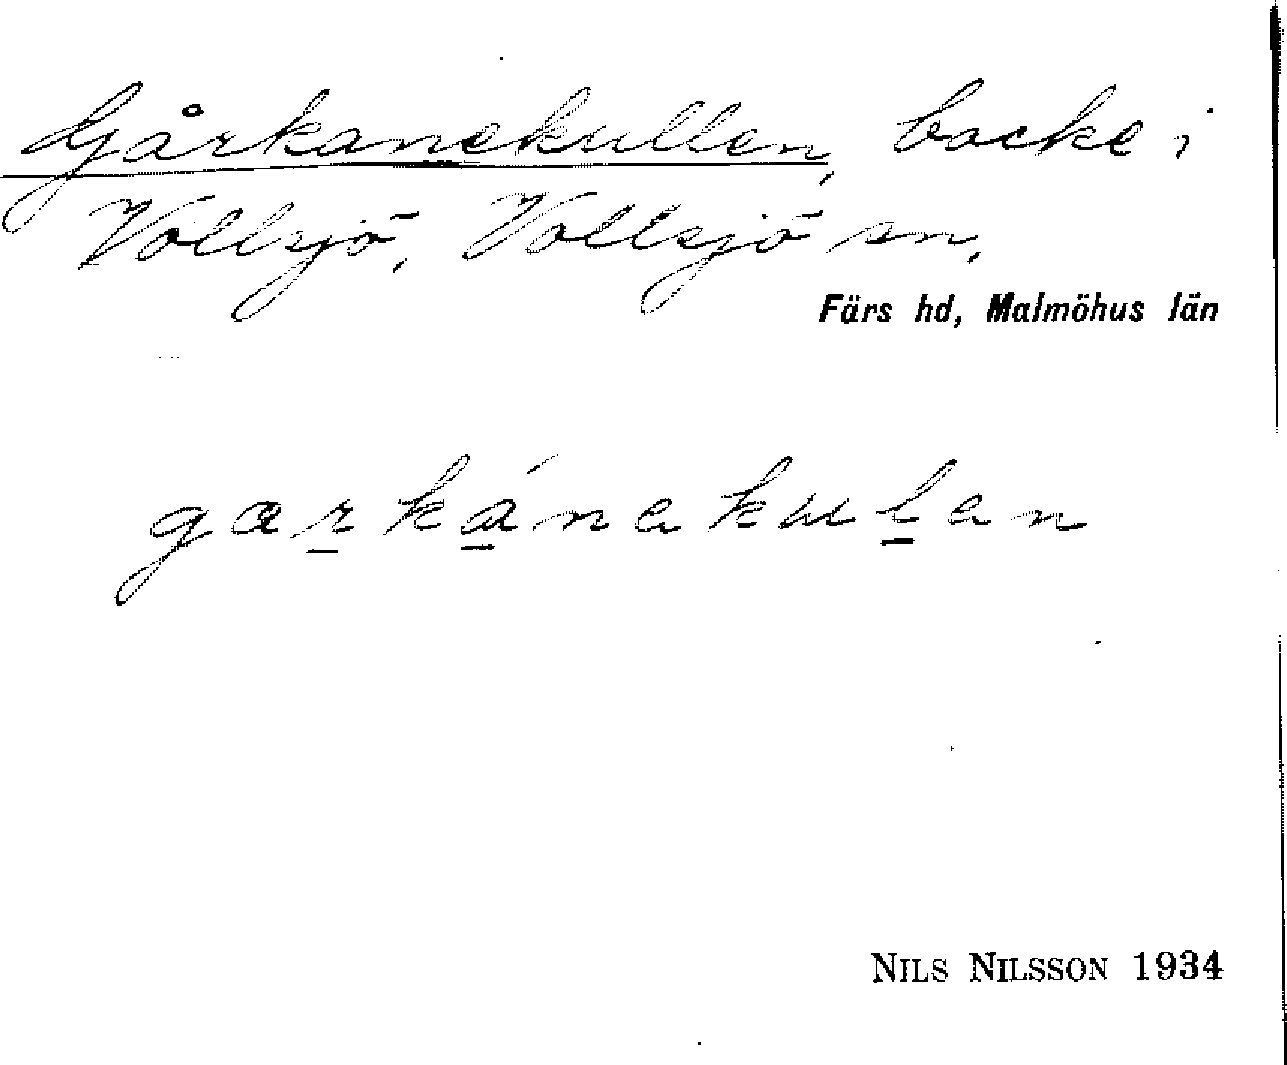 Gårkanekullen, backe i
Vollsjö, Vollsjö sn,
Färs hd, Malmöhus län
garkánekulen
NILS NILSSON 1934